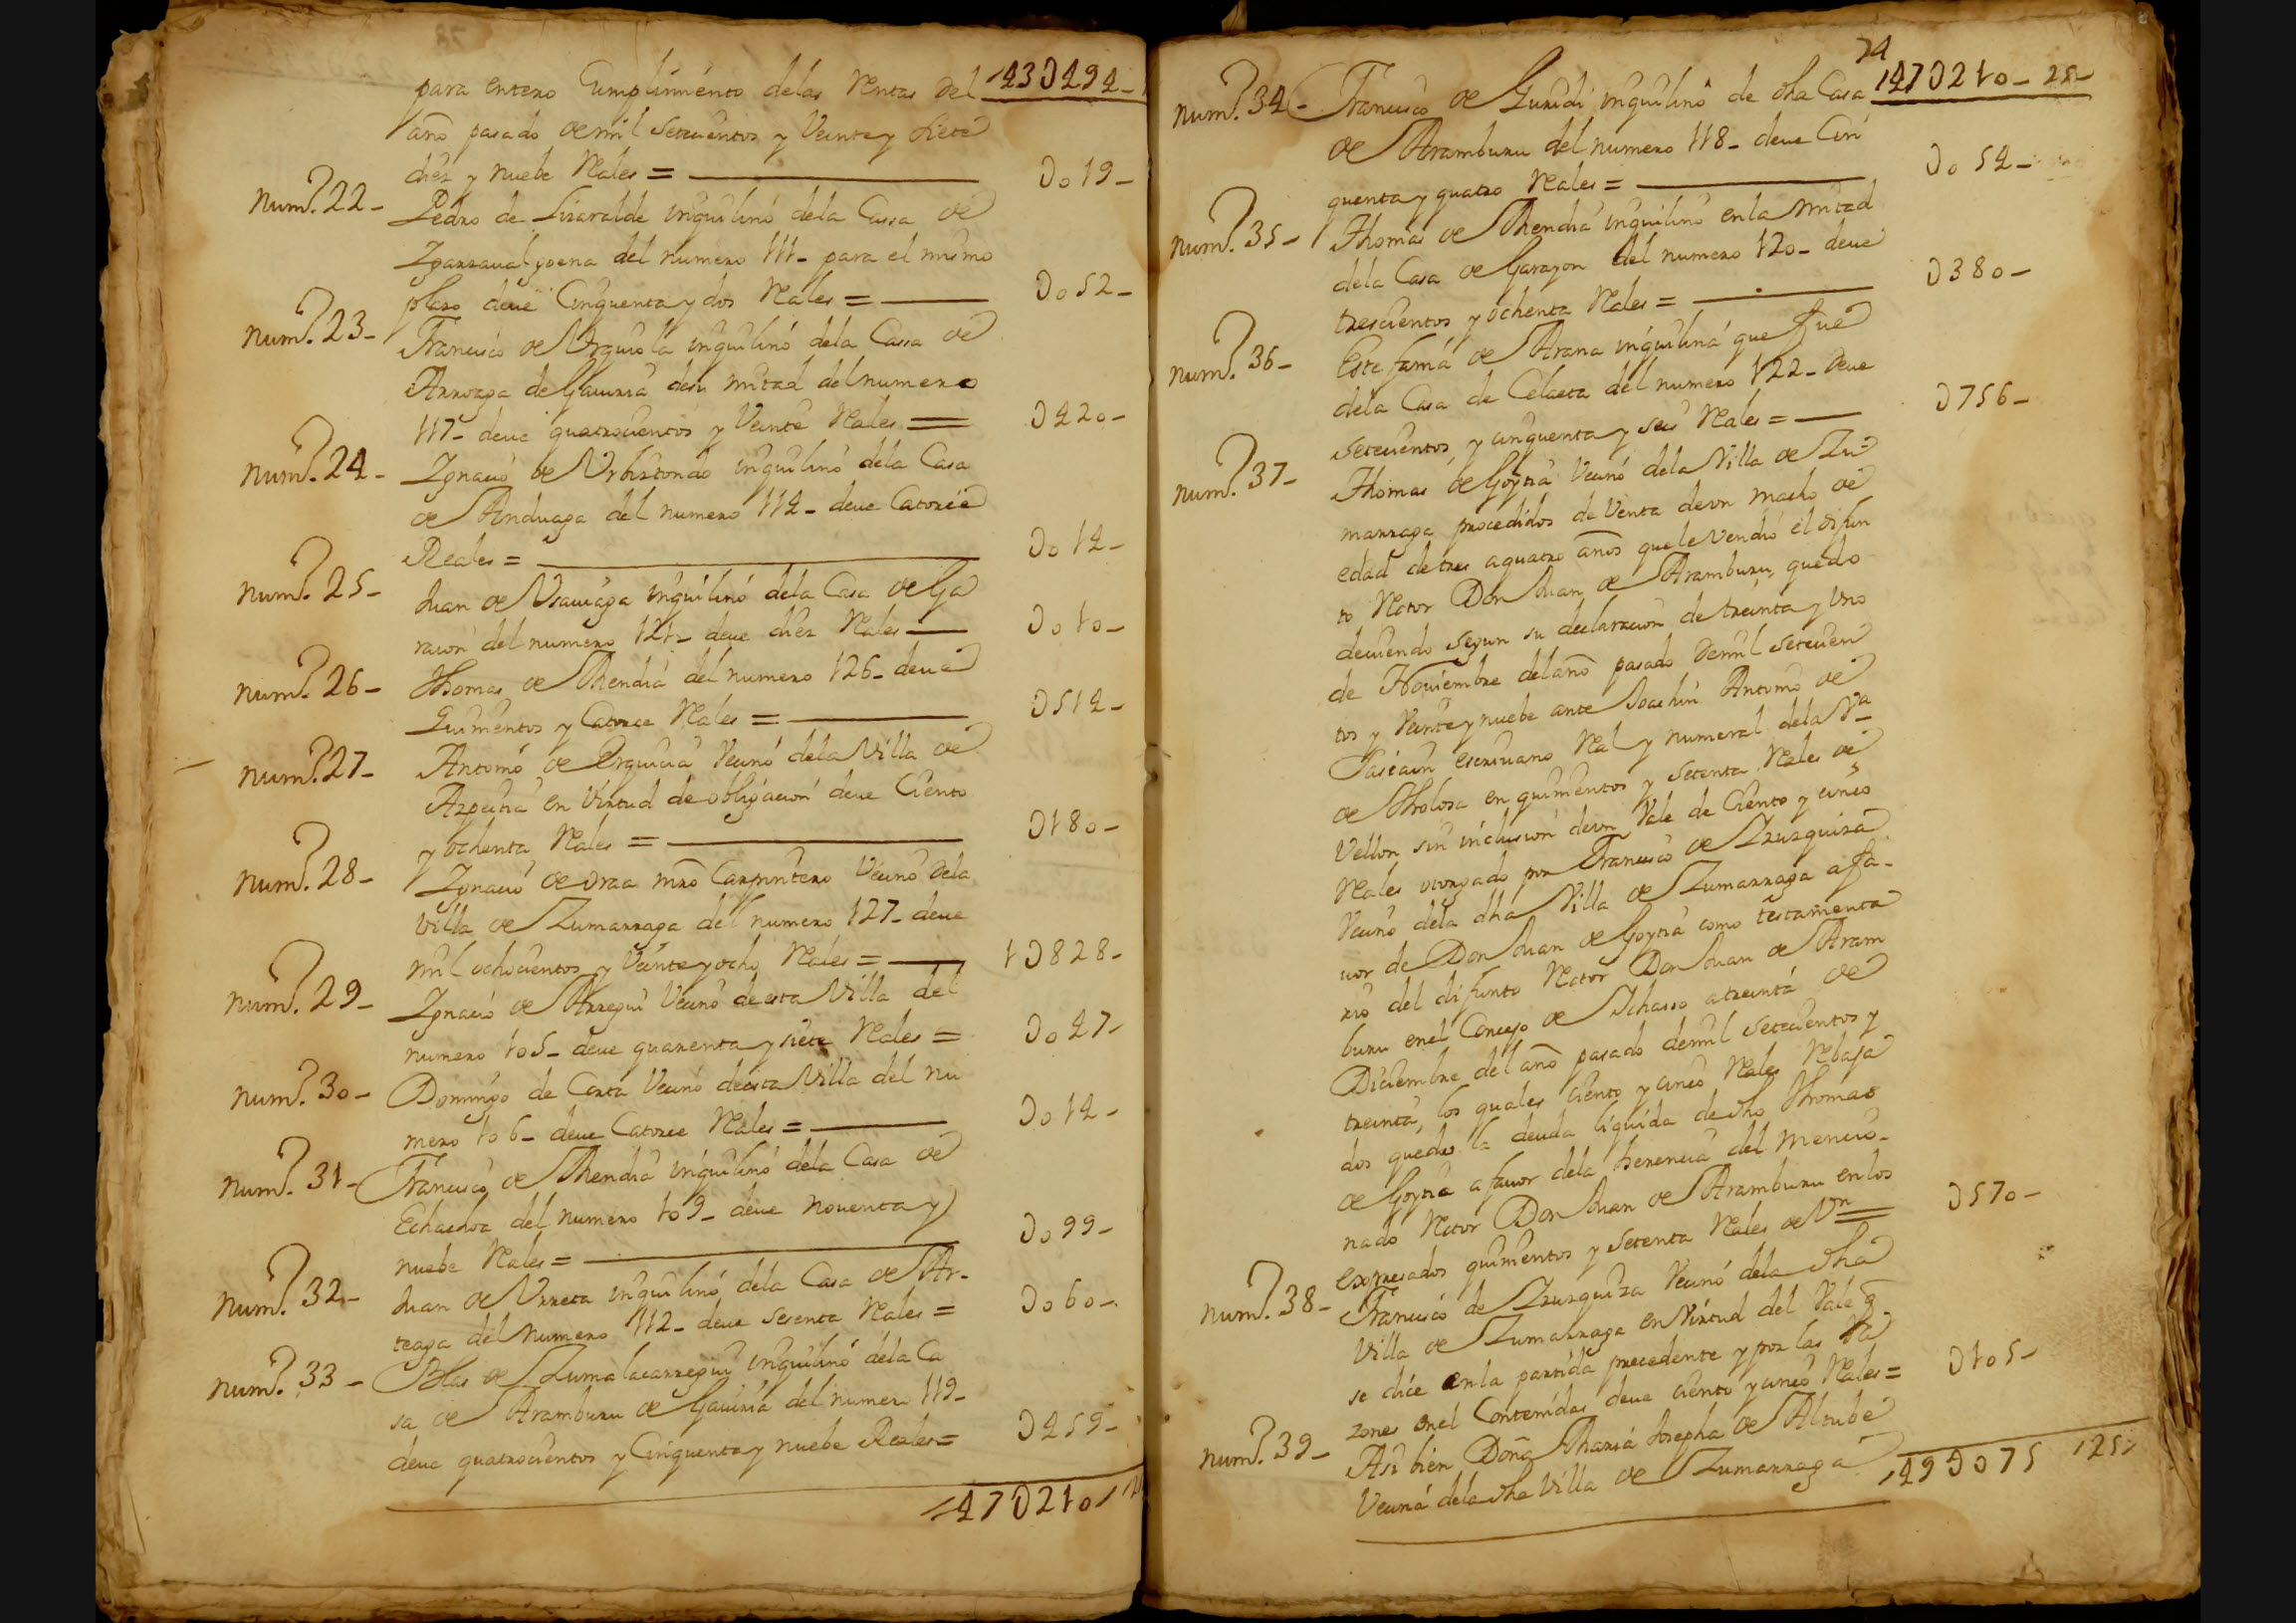 para entero Cumplimiento delas Rentas del 143U494-
año pasado de mil Setecientos y Veinte y siete
diez y nuebe Reales = U019-
num.º 22- Pedro de Lizaralde inquilino dela Cassa de
Ygarzaval goena del numero 111- para el mismo
plazo deue Cinquenta y dos Reales = U052-
num.º 23- Francisco de Vrquiola inquilino dela Cassa de
Arroaga de Gauiria desu mitad del numero
117- deue quatrocientos y Veinte Reales = U420-
num.º 24- Ygnacio de Vrbiztondo inquilino dela Casa
de Anduaga del numero 114- deue Catorce
Reales = U014-
num.º 25- Juan de Vsauiaga inquilino dela Casa de Ga
razon del numero 121- deue diez Reales U010-
num.º 26- Thomas de Mendia del numero 126- deue
Quinientos y Catorce Reales = U514-
num.º 27- Antonio de Erquicia Vecino dela Villa de
Azpeitia en Virtud de obligacion deue Ciento
y ochenta Reales = U180-
num.º 28- Ygnacio de oraa mro Carpintero Vecino dela
Villa de Zumarraga del numero 127- deue
mil ochocientos y Veinte y ocho Reales = 1U828-
num.º 29- Ygnacio de Arregui Vecino de esta Villa del
numero 105- deue quarenta y siete Reales = U047-
num.º 30- Domingo de Corta Vecino de esta Villa del nu
mero 106- deue Catorce Reales = U014-
num.º 31- Francisco de Mendia inquilino dela Casa de
Echachoa del numero 109- deue nouenta y
nuebe Reales = U099-
num.º 32- Juan de Vrreta inquilino dela Casa de Ar-
teaga del numero 112- deue sesenta Reales = U060-
num.º 33- Blas de Zumalacarregui inquilino dela Ca
sa de Aramburu de Gauiria del numero 119-
deue quatrocientos y Cinquenta y nuebe Reales = U459-
147U210
74
147U210- 25-
num.º 34- Francisco de Guridi inquilino de dha Casa
de Aramburu del numero 118- deue Cin
quenta y quatro Reales = U054-
num.º 35- Thomas de Mendia inquilino en la mitad
dela Casa de Garazon del numero 120- deue
trescientos y ochenta Reales = U380-
num.º 36- Estefania de Arana inquilina que fue
dela Casa de Celaeta del numero 122- deue
setecientos y cinquenta y seis Reales = U756-
num.º 37- Thomas de Goytia Vecino dela Villa de Zu=
marraga procedidos de Venta de vn macho de
edad de tres a quatro años que le Vendio el difun
to Retor Don Juan de Aramburu, quedo
deuiendo segun su declaracion de treinta y vno
de Nouiembre del año pasado de mil setecien
tos y Veinte y nuebe ante Joachin Antonio de
escriuano Real y numeral dela Vª
de Tholosa en quinientos y setenta Reales de
Vellon sin inclusion de vn Vale de Ciento y cinco
Reales otorgado por Francisco de Yzurquiza
Vecino dela dha Villa de Zumarraga a fa-
uor de Don Juan de Goytia como testamenta
rio del difunto Retor Don Juan de Aram
buru en el Concejo de Ychasso a treinta de
Diciembre del año pasado de mil setecientos y
treinta, los quales ciento y cinco Reales Rebaja
dos queda la deuda liquida de dho Thomas
de Goytia a fauor dela herencia del mencio-
nado Retor Don Juan de Aramburu en los
expresados quinientos y setenta Reales de Vn = U570-
num.º 38- Francisco de Yzurquiza Vecino dela dha
Villa de Zumarraga en Virtud del Vale q̄
se dice en la partida precedente y por las Ra
zones en el Contenidas deue ciento y cinco Reales = U105-
num.º 39- Asi bien Doña Maria Josepha de Altube
Vecina dela dha Villa de Zumarraga
149U075 25